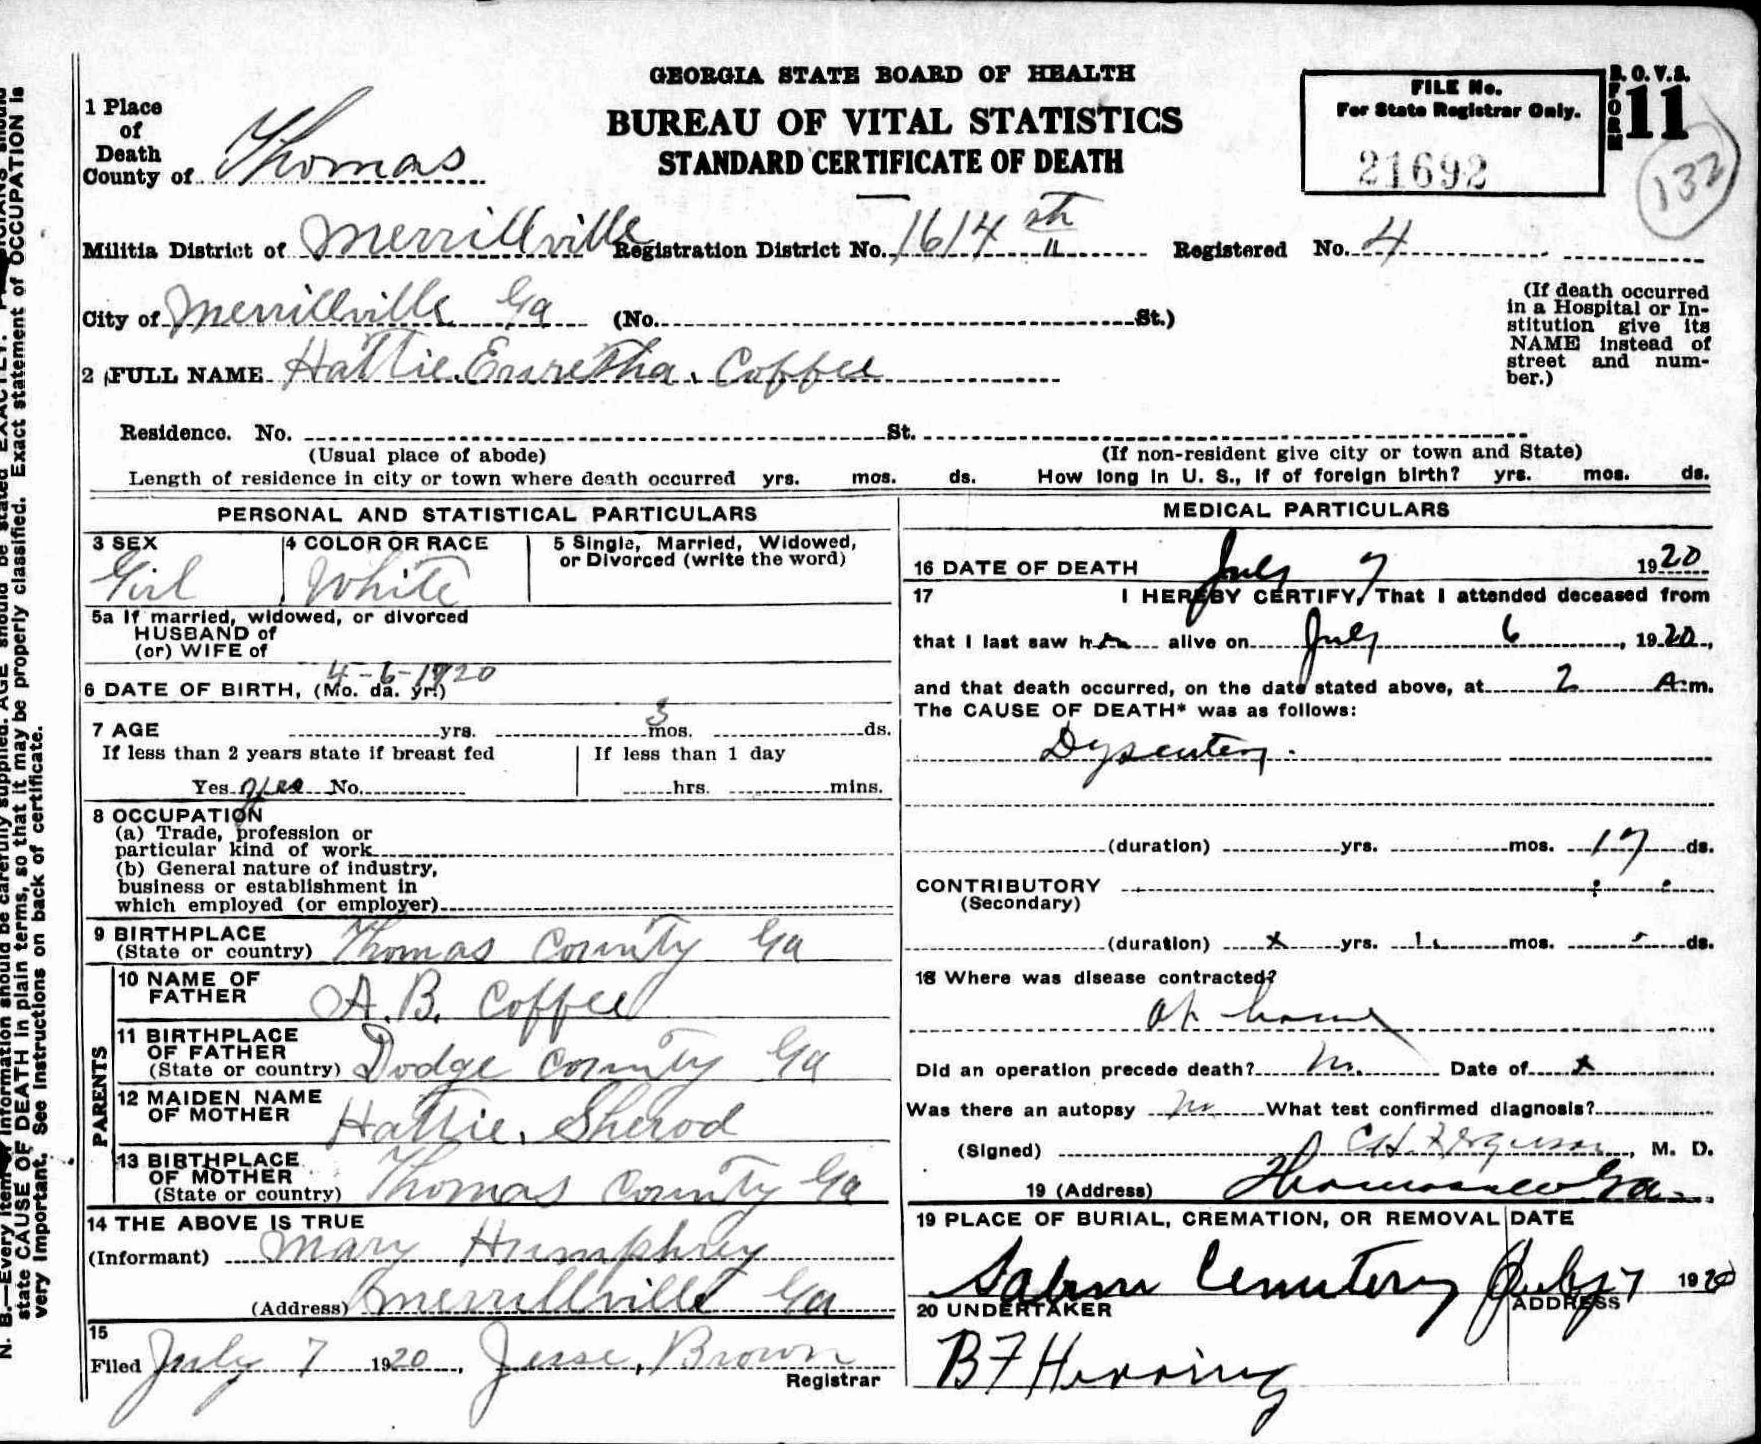 GEORGIA STATE BOARD OF HEALTH
BUREAU OF VITAL STATISTICS
STANDARD CERTIFICATE OF DEATH
FILE No.
For State Registrar Only.
21692
B. O. V. S.
FORM 11
132
1 Place of Death
County of Thomas
Militia District of Merrillville Registration District No. 1614 th Registered No. 4
City of Merrillville Ga (No. St.)
(If death occurred in a Hospital or Institution give its NAME instead of street and number.)
2 FULL NAME Hattie. Coffee
Residence. No. St.
(Usual place of abode) (If non-resident give city or town and State)
Length of residence in city or town where death occurred yrs. mos. ds. How long in U. S., if of foreign birth? yrs. mos. ds.
PERSONAL AND STATISTICAL PARTICULARS
3 SEX Girl
4 COLOR OR RACE White
5 Single, Married, Widowed, or Divorced (write the word)
5a If married, widowed, or divorced
HUSBAND of
(or) WIFE of
6 DATE OF BIRTH, (Mo. da. yr.) 4-6-1920
7 AGE yrs. 3 mos. ds.
If less than 2 years state if breast fed
Yes yes No.
If less than 1 day
hrs. mins.
8 OCCUPATION
(a) Trade, profession or
particular kind of work
(b) General nature of industry,
business or establishment in
which employed (or employer)
9 BIRTHPLACE
(State or country) Thomas County Ga
PARENTS
10 NAME OF FATHER A. B. Coffee
11 BIRTHPLACE OF FATHER
(State or country) Dodge County Ga
12 MAIDEN NAME OF MOTHER Hattie. Sherod
13 BIRTHPLACE OF MOTHER
(State or country) Thomas County Ga
14 THE ABOVE IS TRUE
(Informant) Mary Humphrey
(Address) Merrillville Ga
15
Filed July 7 1920, Jesse, Brown
Registrar
MEDICAL PARTICULARS
16 DATE OF DEATH July 7 1920
17 I HEREBY CERTIFY, That I attended deceased from
that I last saw her alive on July 6, 1920,
and that death occurred, on the date stated above, at 2 A.m.
The CAUSE OF DEATH* was as follows:
Dysentery.
(duration) yrs. mos. 17 ds.
CONTRIBUTORY
(Secondary)
(duration) x yrs. mos. ds.
18 Where was disease contracted?
at home
Did an operation precede death? no. Date of x
Was there an autopsy no What test confirmed diagnosis?
(Signed) CH. Ferguson, M. D.
19 (Address) Thomasville Ga.
19 PLACE OF BURIAL, CREMATION, OR REMOVAL DATE
Salem Cemetery July 7 1920
20 UNDERTAKER ADDRESS
B F Herring
N. B.—Every item of information should be carefully supplied. AGE should be stated EXACTLY.
state CAUSE OF DEATH in plain terms, so that it may be properly classified. Exact statement of OCCUPATION is
very important. See instructions on back of certificate.